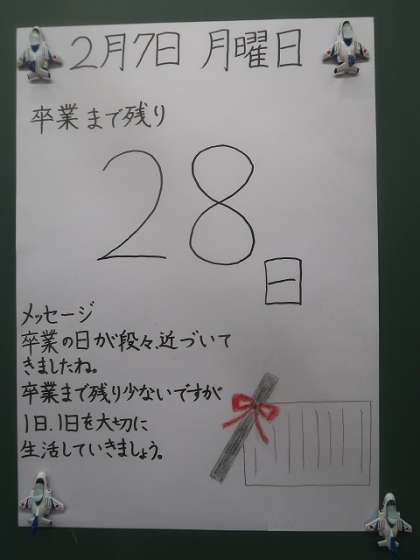 2月7日 月曜日
卒業まで残り
28日
メッセージ
卒業の日が段々、近づいて
きましたね。
卒業まで残り少ないですが
1日、1日を大切に
生活していきましょう。